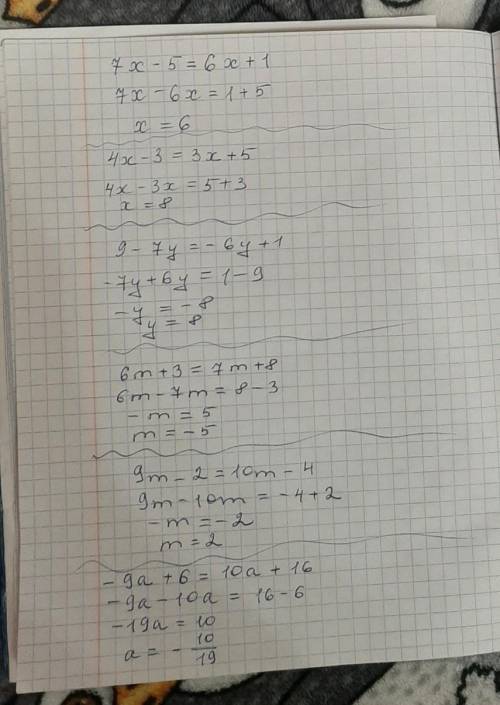 7x - 5 = 6x + 1
7x - 6x = 1 + 5
x = 6
4x - 3 = 3x + 5
4x - 3x = 5 + 3
x = 8
9 - 7y = - 6y + 1
-7y + 6y = 1 - 9
-y = - 8
y = 8
6m + 3 = 7m + 8
6m - 7m = 8 - 3
- m = 5
m = - 5
9m - 2 = 10m - 4
9m - 10m = - 4 + 2
- m = - 2
m = 2
- 9a + 6 = 10a + 16
- 9a - 10a = 16 - 6
- 19a = 10
a = - 10/19